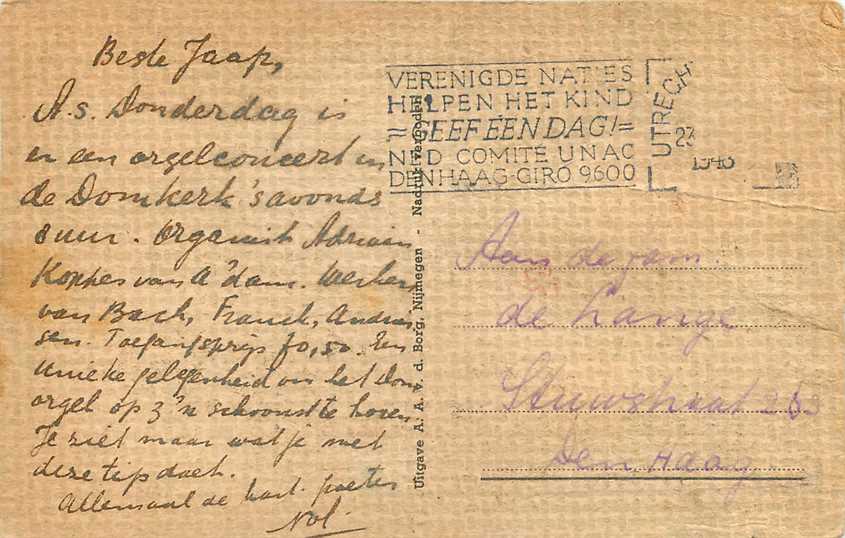 Beste Jaap,
A.s. Donderdag is
er een orgelconcert in
de Domkerk 's avonds
8 uur. Organist Adriaan
Koppes van A'dam. Werken
van Bach, Franck, Andries-
sen. Toegangsprijs f0,50. Een
unieke gelegenheid om het Dom
orgel op z'n schoonst te horen.
Je ziet maar wat je met
deze tip doet.
Allemaal de hart. groeten
Nol.
VERENIGDE NATIES
HELPEN HET KIND
GEEF ÉÉN DAG!
NED COMITÉ UNAC
DEN HAAG-GIRO 9600
UTRECH
23
1948
Uitgave A. A. v. d. Borg, Nijmegen - Nadruk verboden
Aan de fam.
de Lange
Stuwstraat 263
Den Haag